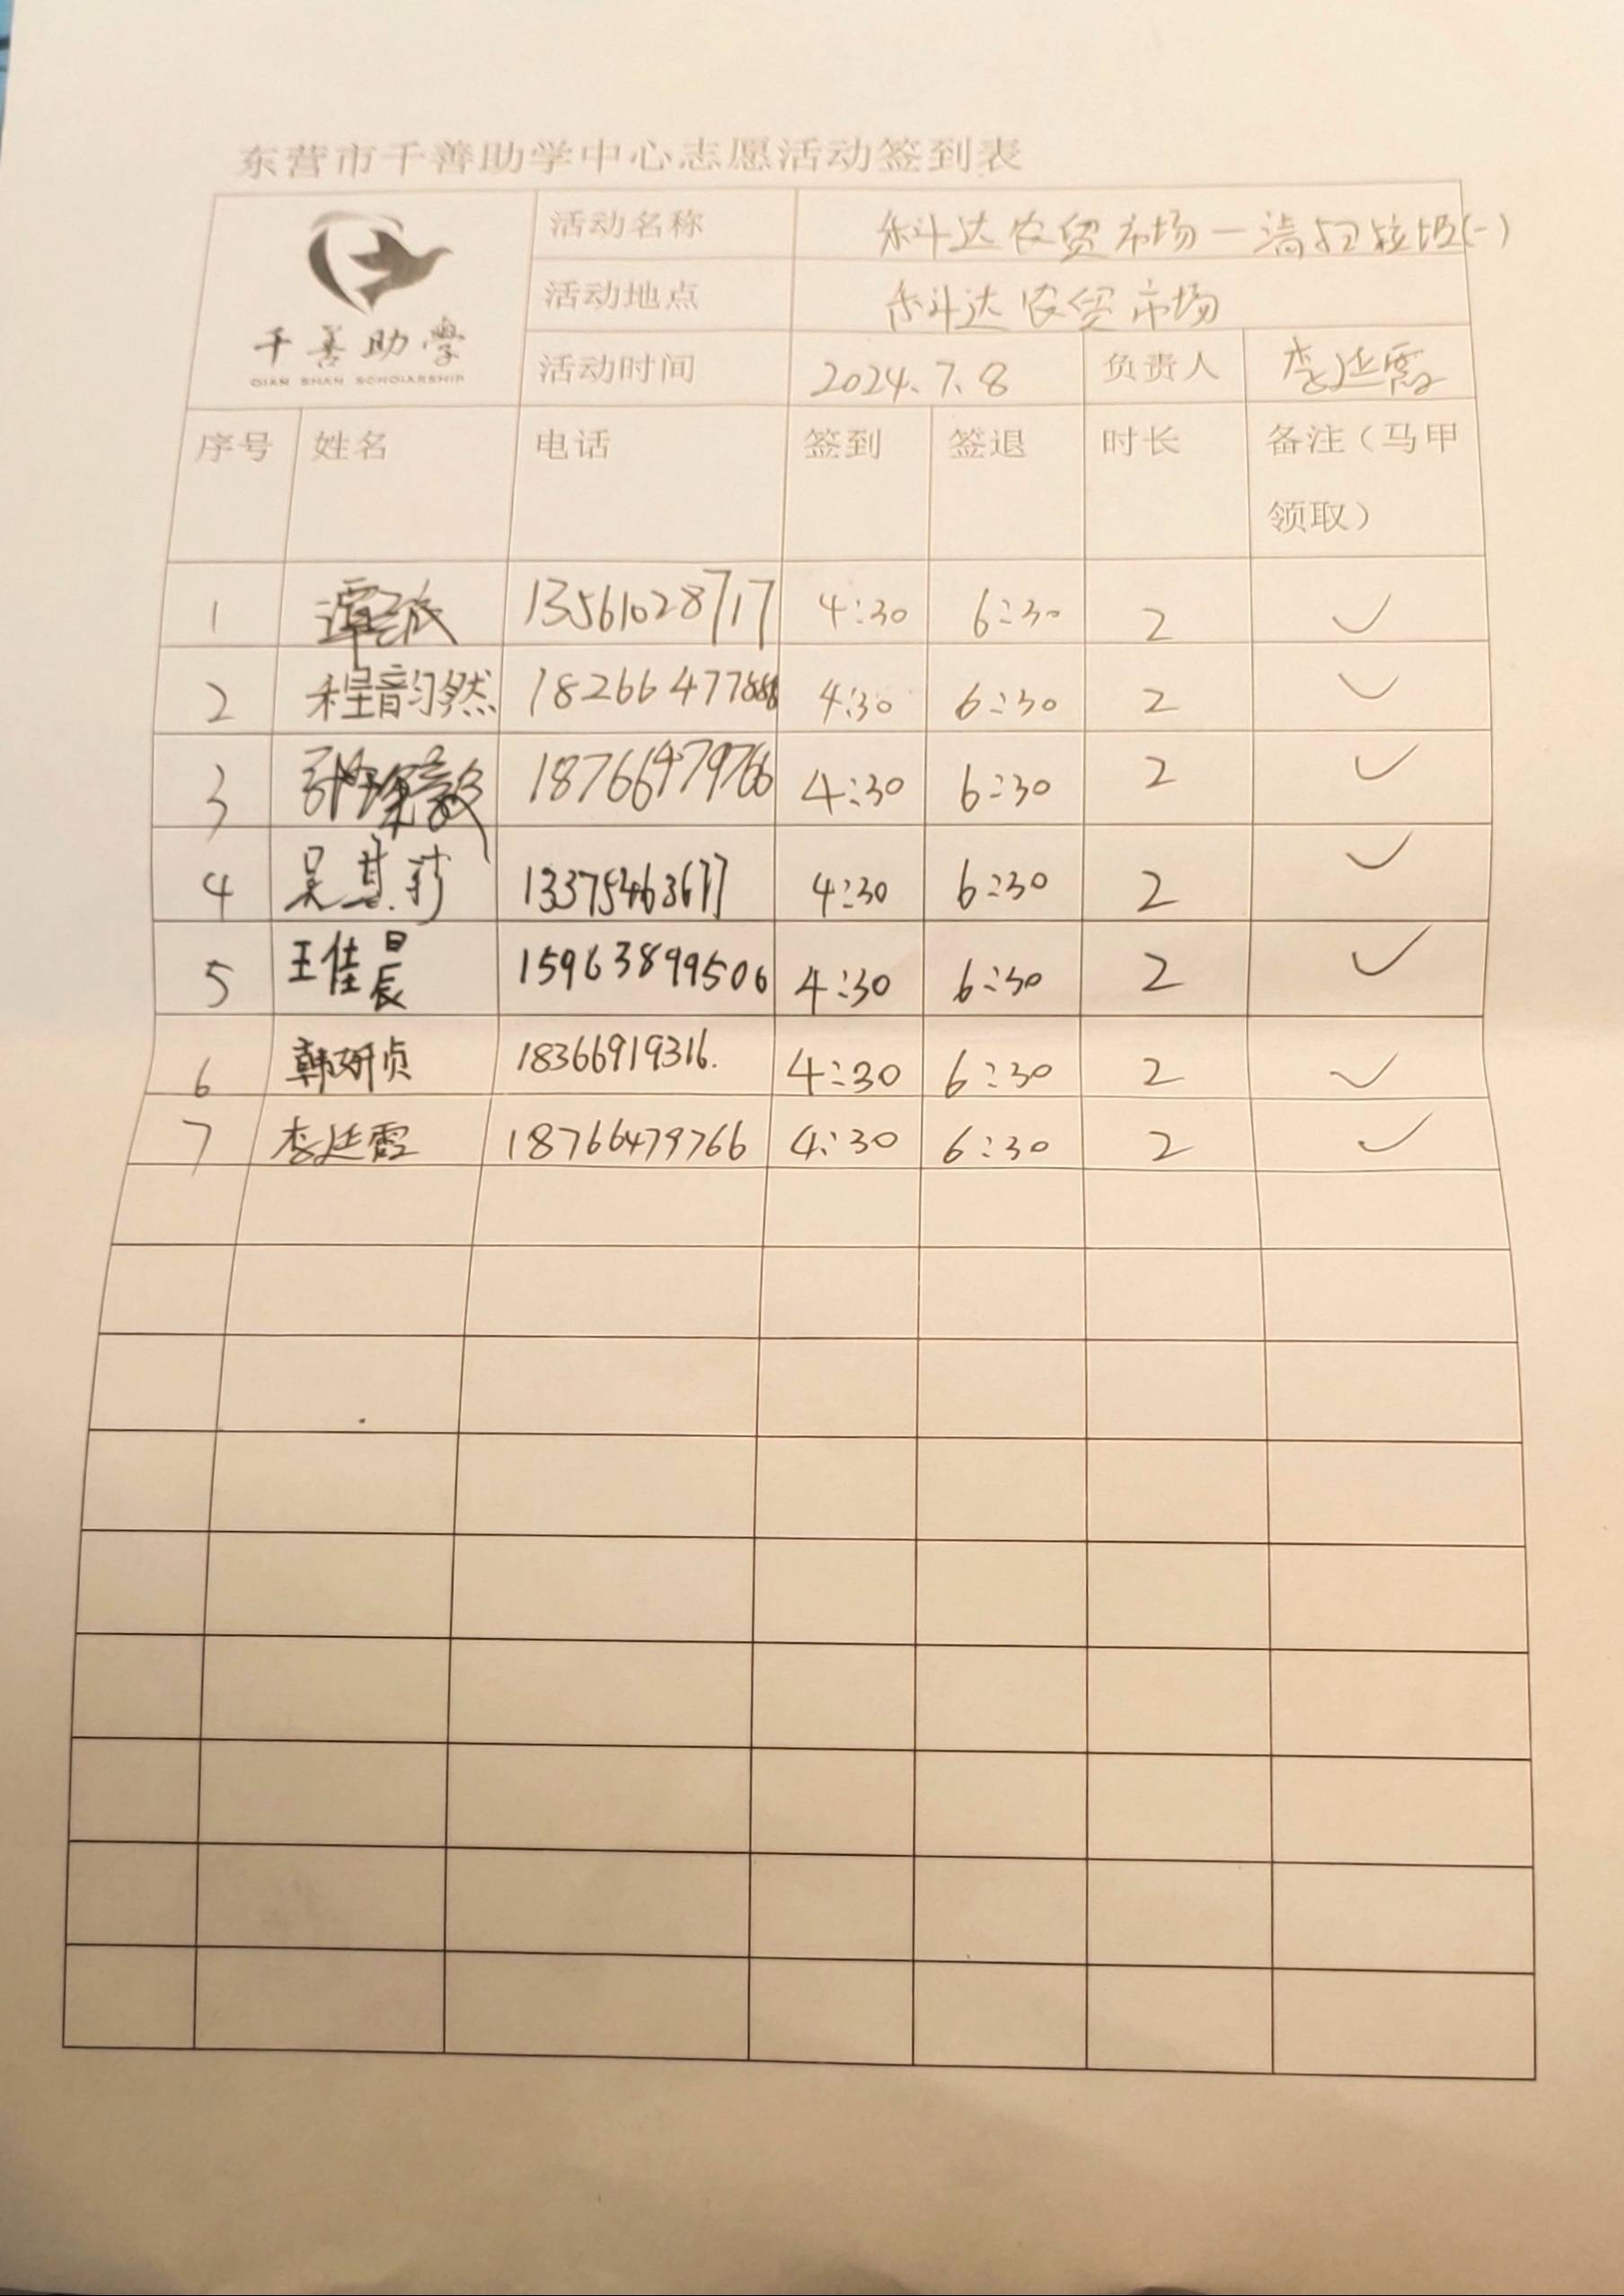 东营市千善助学中心志愿活动签到表
千善助学
QIAN SHAN SCHOLARSHIP
活动名称 科达农贸市场一清扫垃圾(一)
活动地点 科达农贸市场
活动时间 2024.7.8 负责人 李廷霞
序号 姓名 电话 签到 签退 时长 备注（马甲领取）
1 谭 13561028717 4:30 6:30 2 ✓
2 程韵然 18266477888 4:30 6:30 2 ✓
3 18766479766 4:30 6:30 2 ✓
4 吴其莎 13375463677 4:30 6:30 2 ✓
5 王佳晨 15963899506 4:30 6:30 2 ✓
6 韩妍贞 18366919316. 4:30 6:30 2 ✓
7 李廷霞 18766479766 4:30 6:30 2 ✓